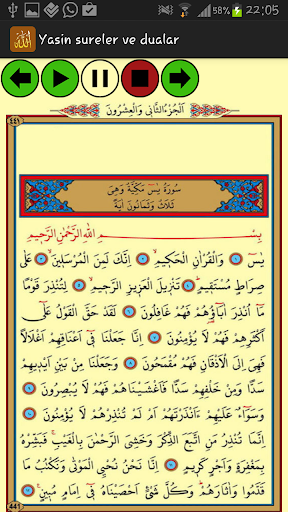 53% 22:05
Yasin sureler ve dualar
اَلْجُزْءُ الثَّانِي وَالْعِشْرُونَ
٤٤١
سُورَةُ يٰسٓ مَكِّيَّةٌ وَهِيَ
ثَلَاثٌ وَثَمَانُونَ اٰيَةً
بِسْمِ اللّٰهِ الرَّحْمٰنِ الرَّحِيمِ
يٰسٓ ١ وَالْقُرْاٰنِ الْحَكِيمِ ٢ اِنَّكَ لَمِنَ الْمُرْسَلِينَ ٣ عَلٰى
صِرَاطٍ مُسْتَقِيمٍ ٤ تَنْزِيلَ الْعَزِيزِ الرَّحِيمِ ٥ لِتُنْذِرَ قَوْمًا
مَٓا اُنْذِرَ اٰبَٓاؤُ۬هُمْ فَهُمْ غَافِلُونَ ٦ لَقَدْ حَقَّ الْقَوْلُ عَلٰٓى
اَكْثَرِهِمْ فَهُمْ لَا يُؤْمِنُونَ ٧ اِنَّا جَعَلْنَا ف۪ٓي اَعْنَاقِهِمْ اَغْلَالًا
فَهِيَ اِلَى الْاَذْقَانِ فَهُمْ مُقْمَحُونَ ٨ وَجَعَلْنَا مِنْ بَيْنِ اَيْدِيهِمْ
سَدًّا وَمِنْ خَلْفِهِمْ سَدًّا فَاَغْشَيْنَاهُمْ فَهُمْ لَا يُبْصِرُونَ ٩
وَسَوَٓاءٌ عَلَيْهِمْ ءَاَنْذَرْتَهُمْ اَمْ لَمْ تُنْذِرْهُمْ لَا يُؤْمِنُونَ ١٠
اِنَّمَا تُنْذِرُ مَنِ اتَّبَعَ الذِّكْرَ وَخَشِيَ الرَّحْمٰنَ بِالْغَيْبِ فَبَشِّرْهُ
بِمَغْفِرَةٍ وَاَجْرٍ كَرِيمٍ ١١ اِنَّا نَحْنُ نُحْيِ الْمَوْتٰى وَنَكْتُبُ مَا
قَدَّمُوا وَاٰثَارَهُمْ وَكُلَّ شَيْءٍ اَحْصَيْنَاهُ ف۪ٓي اِمَامٍ مُبِينٍ ١٢
441